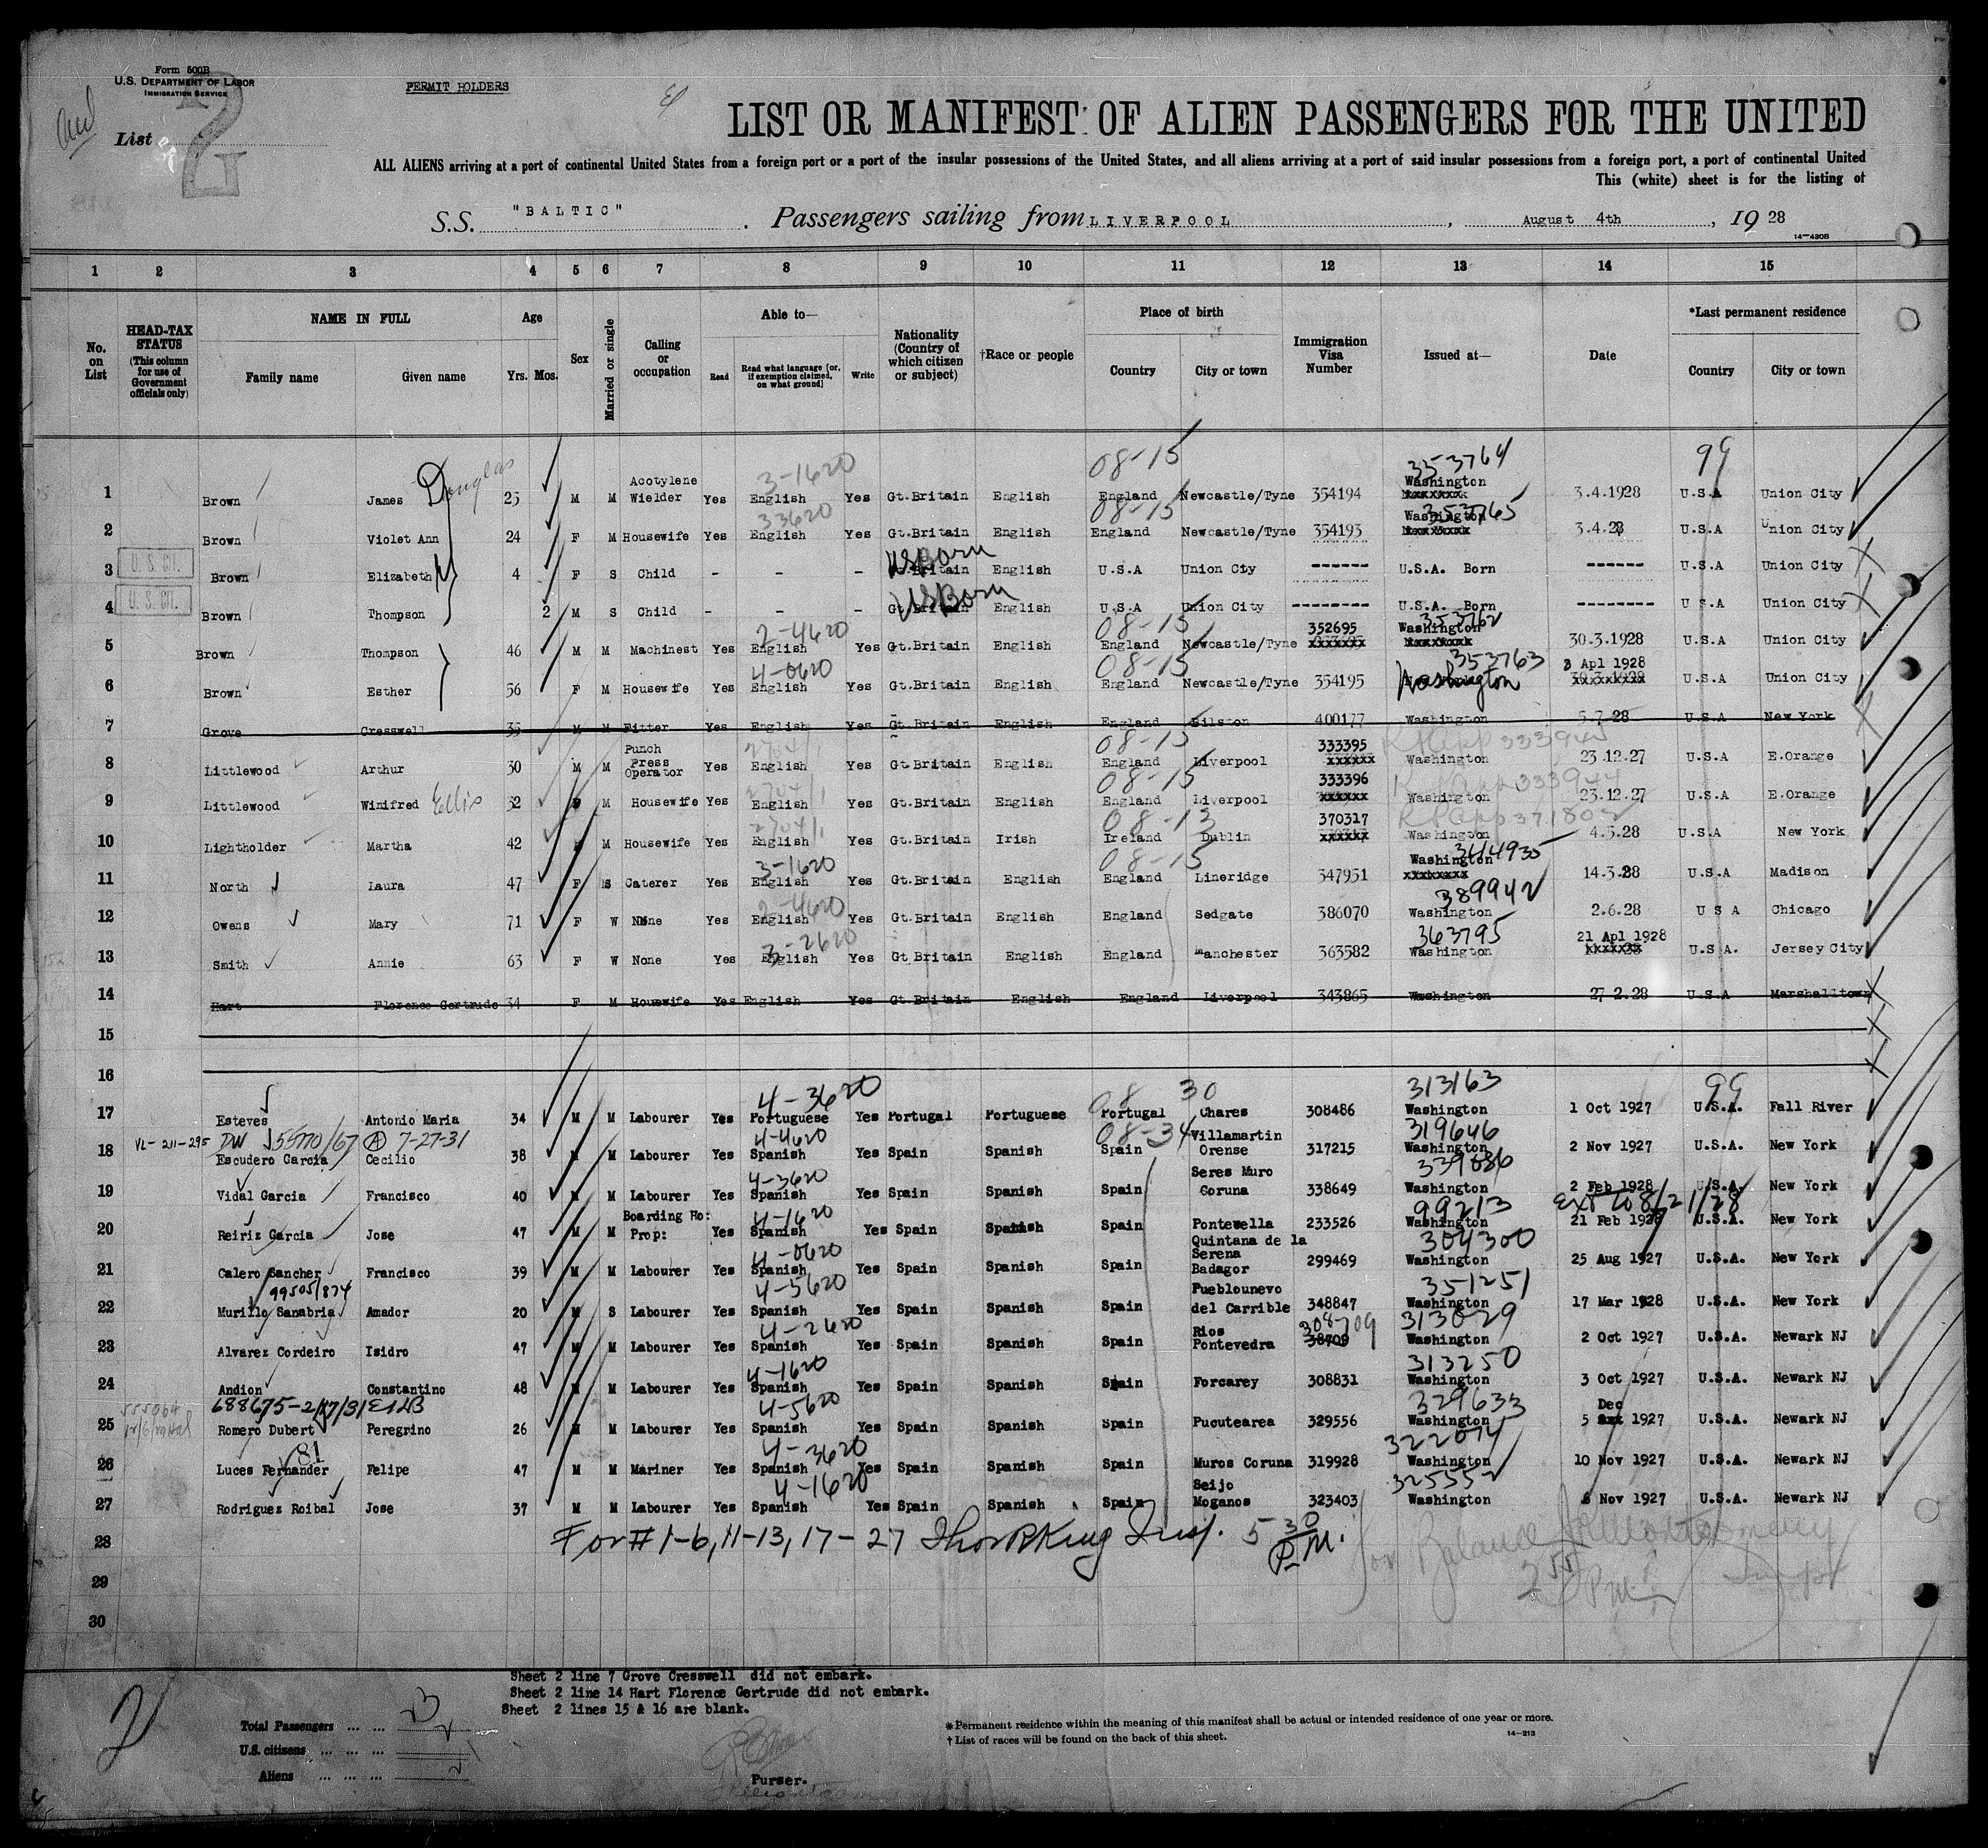 Form 500B
U.S. DEPARTMENT OF LABOR
IMMIGRATION SERVICE
PERMIT HOLDERS
List 2
LIST OR MANIFEST OF ALIEN PASSENGERS FOR THE UNITED
ALL ALIENS arriving at a port of continental United States from a foreign port or a port of the insular possessions of the United States, and all aliens arriving at a port of said insular possessions from a foreign port, a port of continental United
This (white) sheet is for the listing of
S.S. "BALTIC". Passengers sailing from LIVERPOOL, August 4th, 1928
14-430B
1 2 3 4 5 6 7 8 9 10 11 12 13 14 15
No. on List
HEAD-TAX STATUS (This column for use of Government officials only)
NAME IN FULL Family name Given name
Age Yrs. Mos.
Sex
Married or single
Calling or occupation
Able to— Read Read what language [or, if exemption claimed, on what ground] Write
Nationality (Country of which citizen or subject)
†Race or people
Place of birth Country City or town
Immigration Visa Number
Issued at—
Date
*Last permanent residence Country City or town
3-1620 08-15 353764 99
1 Brown James Douglas 25 M M Acotylene Wielder Yes English Yes Gt.Britain English England Newcastle/Tyne 354194 Washington 3.4.1928 U.S.A Union City
33620 08-15 353765
2 Brown Violet Ann 24 F M Housewife Yes English Yes Gt.Britain English England Newcastle/Tyne 354193 Washington 3.4.28 U.S.A Union City
U. S. CIT. USBorn
3 Brown Elizabeth 4 F S Child - - - Gt.Britain English U.S.A Union City ------ U.S.A. Born ------ U.S.A Union City
U. S. CIT. USBorn
4 Brown Thompson 2 M S Child - - - Gt.Britain English U.S.A Union City -------- U.S.A. Born -------- U S.A Union City
2-4620 08-15 353762
5 Brown Thompson 46 M M Machinest Yes English Yes Gt.Britain English England Newcastle/Tyne 352695 Washington 30.3.1928 U.S.A Union City
4-0620 08-15 353763
6 Brown Esther 56 F M Housewife Yes English Yes Gt.Britain English England Newcastle/Tyne 354195 Washington 3 Apl 1928 U.S.A Union City
7 Grove Cresswell 35 M M Fitter Yes English Yes Gt Britain English England Bilston 400177 Washington 5.7.28 U.S.A New York
08-15
8 Littlewood Arthur 30 M M Punch Press Operator Yes English Yes Gt.Britain English England Liverpool 333395 Washington 23.12.27 U.S.A E.Orange
27041 08-15
9 Littlewood Winifred Ellis 32 M Housewife Yes English Yes Gt.Britain English England Liverpool 333396 Washington 23.12.27 U.S.A E.Orange
27041 08-13
10 Lightholder Martha 42 M Housewife Yes English Yes Gt.Britain Irish Ireland Dublin 370317 Washington 4.5.28 U.S.A New York
3-1620 08-15 344935
11 North Laura 47 F S Caterer Yes English Yes Gt.Britain English England Lineridge 347951 Washington 14.3.28 U.S.A Madison
2-4620 389942
12 Owens Mary 71 F W None Yes English Yes Gt.Britain English England Sedgate 386070 Washington 2.6.28 U S A Chicago
3-2620 363795
13 Smith Annie 63 F W None Yes English Yes Gt Britain English England Manchester 363582 Washington 21 Apl 1928 U.S.A. Jersey City
14 Hart Florence Gertrude 34 F M Housewife Yes English Yes Gt.Britain English England Liverpool 343865 Washington 27 2.28 U.S.A Marshalltown
15
16
4-3620 08 30 313163 99
17 Esteves Antonio Maria 34 M M Labourer Yes Portuguese Yes Portugal Portuguese Portugal Chares 308486 Washington 1 Oct 1927 U.S.A. Fall River
VL-211-295 DW 55770/67 A 7-27-31 4-4620 08-34 319646
18 Escudero Garcia Cecilio 38 M M Labourer Yes Spanish Yes Spain Spanish Spain Villamartin Orense 317215 Washington 2 Nov 1927 U.S.A. New York
4-3620 339086
19 Vidal Garcia Francisco 40 M M Labourer Yes Spanish Yes Spain Spanish Spain Seres Muro Coruna 338649 Washington 2 Feb 1928 U.S.A. New York
4-1620 99213 Ext to 8/21/28
20 Reiriz Garcia Jose 47 M M Boarding Ho: Prop: Yes Spanish Yes Spain Spanish Spain Pontewella 233526 Washington 21 Feb 1928 U.S.A. New York
4-0620 304300
21 Calero Sancher Francisco 39 M M Labourer Yes Spanish Yes Spain Spanish Spain Quintana de la Serena Badagor 299469 Washington 25 Aug 1927 U.S.A. New York
99505/874 4-5620 351251
22 Murillo Sanabria Amador 20 M S Labourer Yes Spanish Yes Spain Spanish Spain Pueblounevo del Carrible 348847 Washington 17 Mar 1928 U.S.A. New York
4-2620 308709 313029
23 Alvarez Cordeiro Isidro 47 M M Labourer Yes Spanish Yes Spain Spanish Spain Rios Pontevedra 38709 Washington 2 Oct 1927 U.S.A. Newark NJ
4-1620 313250
24 Andion Constantino 48 M M Labourer Yes Spanish Yes Spain Spanish Spain Forcarey 308831 Washington 3 Oct 1927 U.S.A. Newark NJ
4-5620 329633
25 Romero Dubert Peregrino 26 M M Labourer Yes Spanish Yes Spain Spanish Spain Pucutearea 329556 Washington 5 Dec 1927 U.S.A. Newark NJ
81 4-3620 322074
26 Luces Fernander Felipe 47 M M Mariner Yes Spanish Yes Spain Spanish Spain Muros Coruna 319928 Washington 10 Nov 1927 U.S.A. Newark NJ
4-1620 325552
27 Rodriguez Roibal Jose 37 M M Labourer Yes Spanish Yes Spain Spanish Spain Seijo Moganos 323403 Washington 8 Nov 1927 U.S.A. Newark NJ
28 For # 1-6, 11-13, 17-27 Insp. 5 30 P.M. for Balance
29 2 55 PM
30
Sheet 2 line 7 Grove Cresswell did not embark.
Sheet 2 line 14 Hart Florence Gertrude did not embark.
Sheet 2 lines 15 & 16 are blank.
2
Total Passengers ... ... 23
U.S. citizens ... ... ... 2
Aliens ... ... ... 21
Purser.
*Permanent residence within the meaning of this manifest shall be actual or intended residence of one year or more.
†List of races will be found on the back of this sheet.
14-213